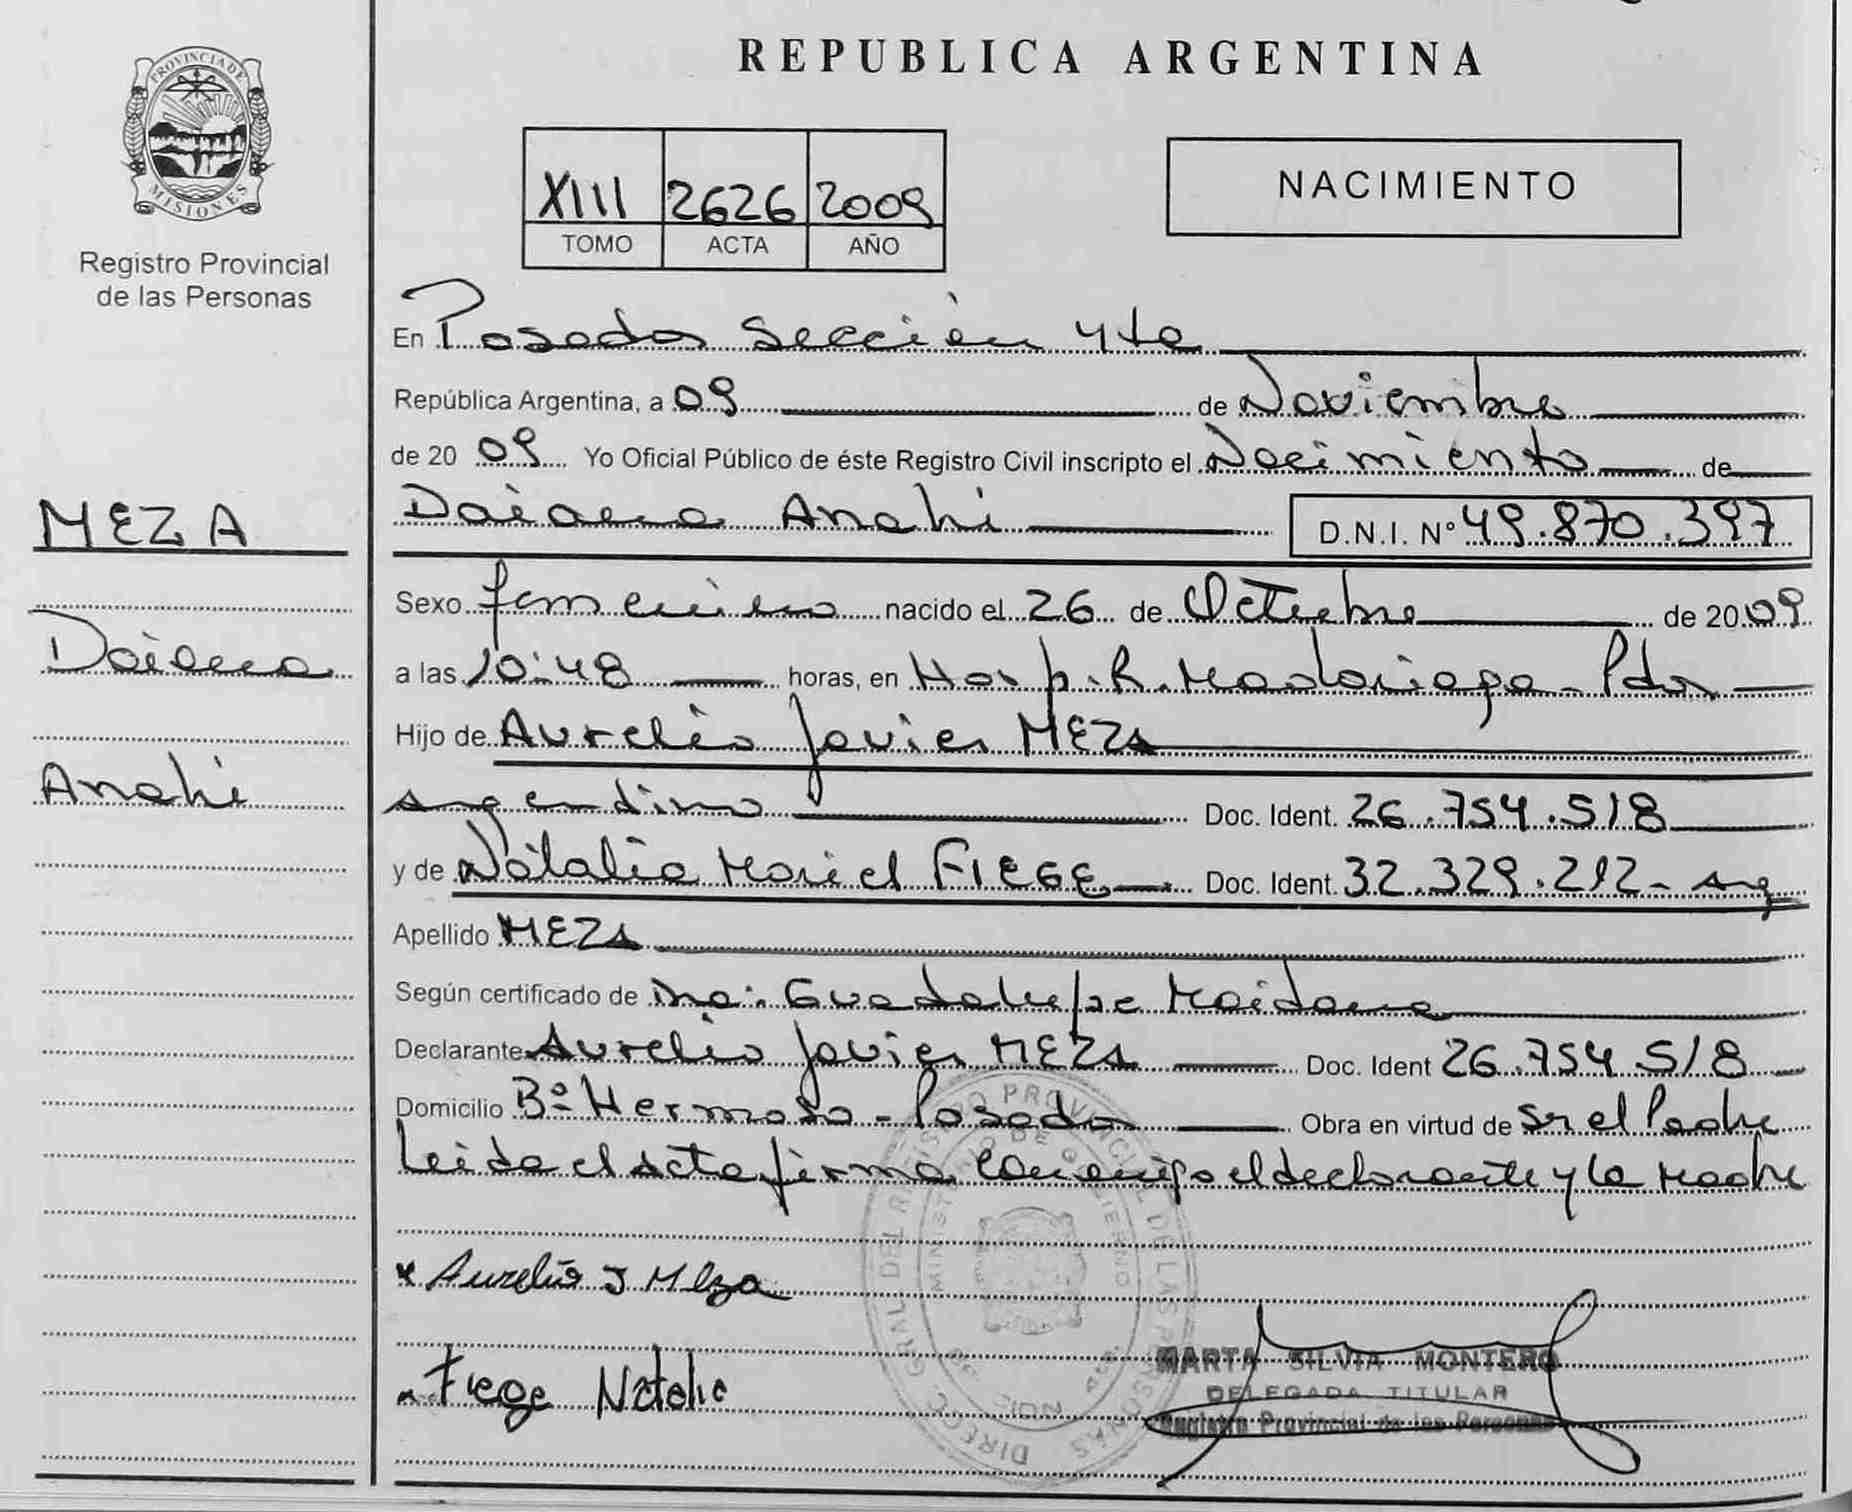 PROVINCIA DE
MISIONES
Registro Provincial
de las Personas
MEZA
Daiana
Anahi
REPUBLICA ARGENTINA
XIII 2626 2009
TOMO ACTA AÑO
NACIMIENTO
En Posadas Sección 4ta
República Argentina, a 09 de Noviembre
de 20 09 Yo Oficial Público de éste Registro Civil inscripto el Nacimiento de
Daiana Anahi D.N.I. Nº 49.870.397
Sexo femenino nacido el 26 de Octubre de 20 09
a las 10:48 horas, en Hosp. R. Madariaga - Pdas
Hijo de Aurelio Javier MEZA
argentino Doc. Ident. 26.754.518
y de Natalia Mariel FIEGE Doc. Ident. 32.329.212 - arg
Apellido MEZA
Según certificado de Guadalupe Maidana
Declarante Aurelio Javier MEZA Doc. Ident 26.754.518
Domicilio Bº Hermoso - Posadas Obra en virtud de ser el Padre
Leida el acta firma conmigo el declarante y la Madre
Aurelio J Meza
Fiege Natalia
MARTA SILVIA MONTERO
DELEGADA TITULAR
Registro Provincial de las Personas
DIREC. GRAL DEL REGISTRO PROVINCIAL DE LAS PERSONAS
MINISTERIO DE GOBIERNO